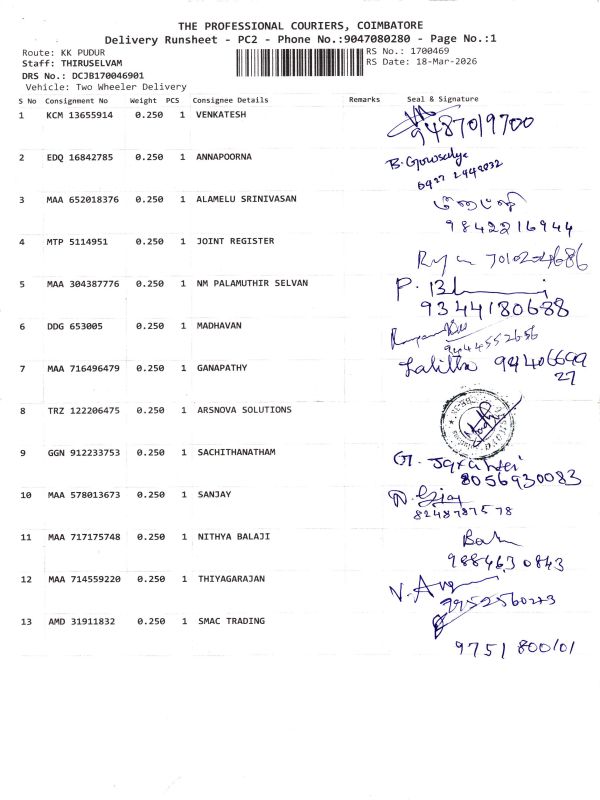 THE PROFESSIONAL COURIERS, COIMBATORE
Delivery Runsheet - PC2 - Phone No.:9047080280 - Page No.:1
Route: KK PUDUR RS No.: 1700469
Staff: THIRUSELVAM RS Date: 18-Mar-2026
DRS No.: DCJB170046901
Vehicle: Two Wheeler Delivery
S No Consignment No Weight PCS Consignee Details Remarks Seal & Signature
1 KCM 13655914 0.250 1 VENKATESH 9487019700
2 EDQ 16842785 0.250 1 ANNAPOORNA B. Gowsalya
3 MAA 652018376 0.250 1 ALAMELU SRINIVASAN
9842216944
4 MTP 5114951 0.250 1 JOINT REGISTER
5 MAA 304387776 0.250 1 NM PALAMUTHIR SELVAN P.
9344180688
6 DDG 653005 0.250 1 MADHAVAN
9444552656
7 MAA 716496479 0.250 1 GANAPATHY Lalitha 94406699
27
8 TRZ 122206475 0.250 1 ARSNOVA SOLUTIONS
9 GGN 912233753 0.250 1 SACHITHANATHAM G.
8056930083
10 MAA 578013673 0.250 1 SANJAY
8248787578
11 MAA 717175748 0.250 1 NITHYA BALAJI
9884630843
12 MAA 714559220 0.250 1 THIYAGARAJAN
13 AMD 31911832 0.250 1 SMAC TRADING
9751800101